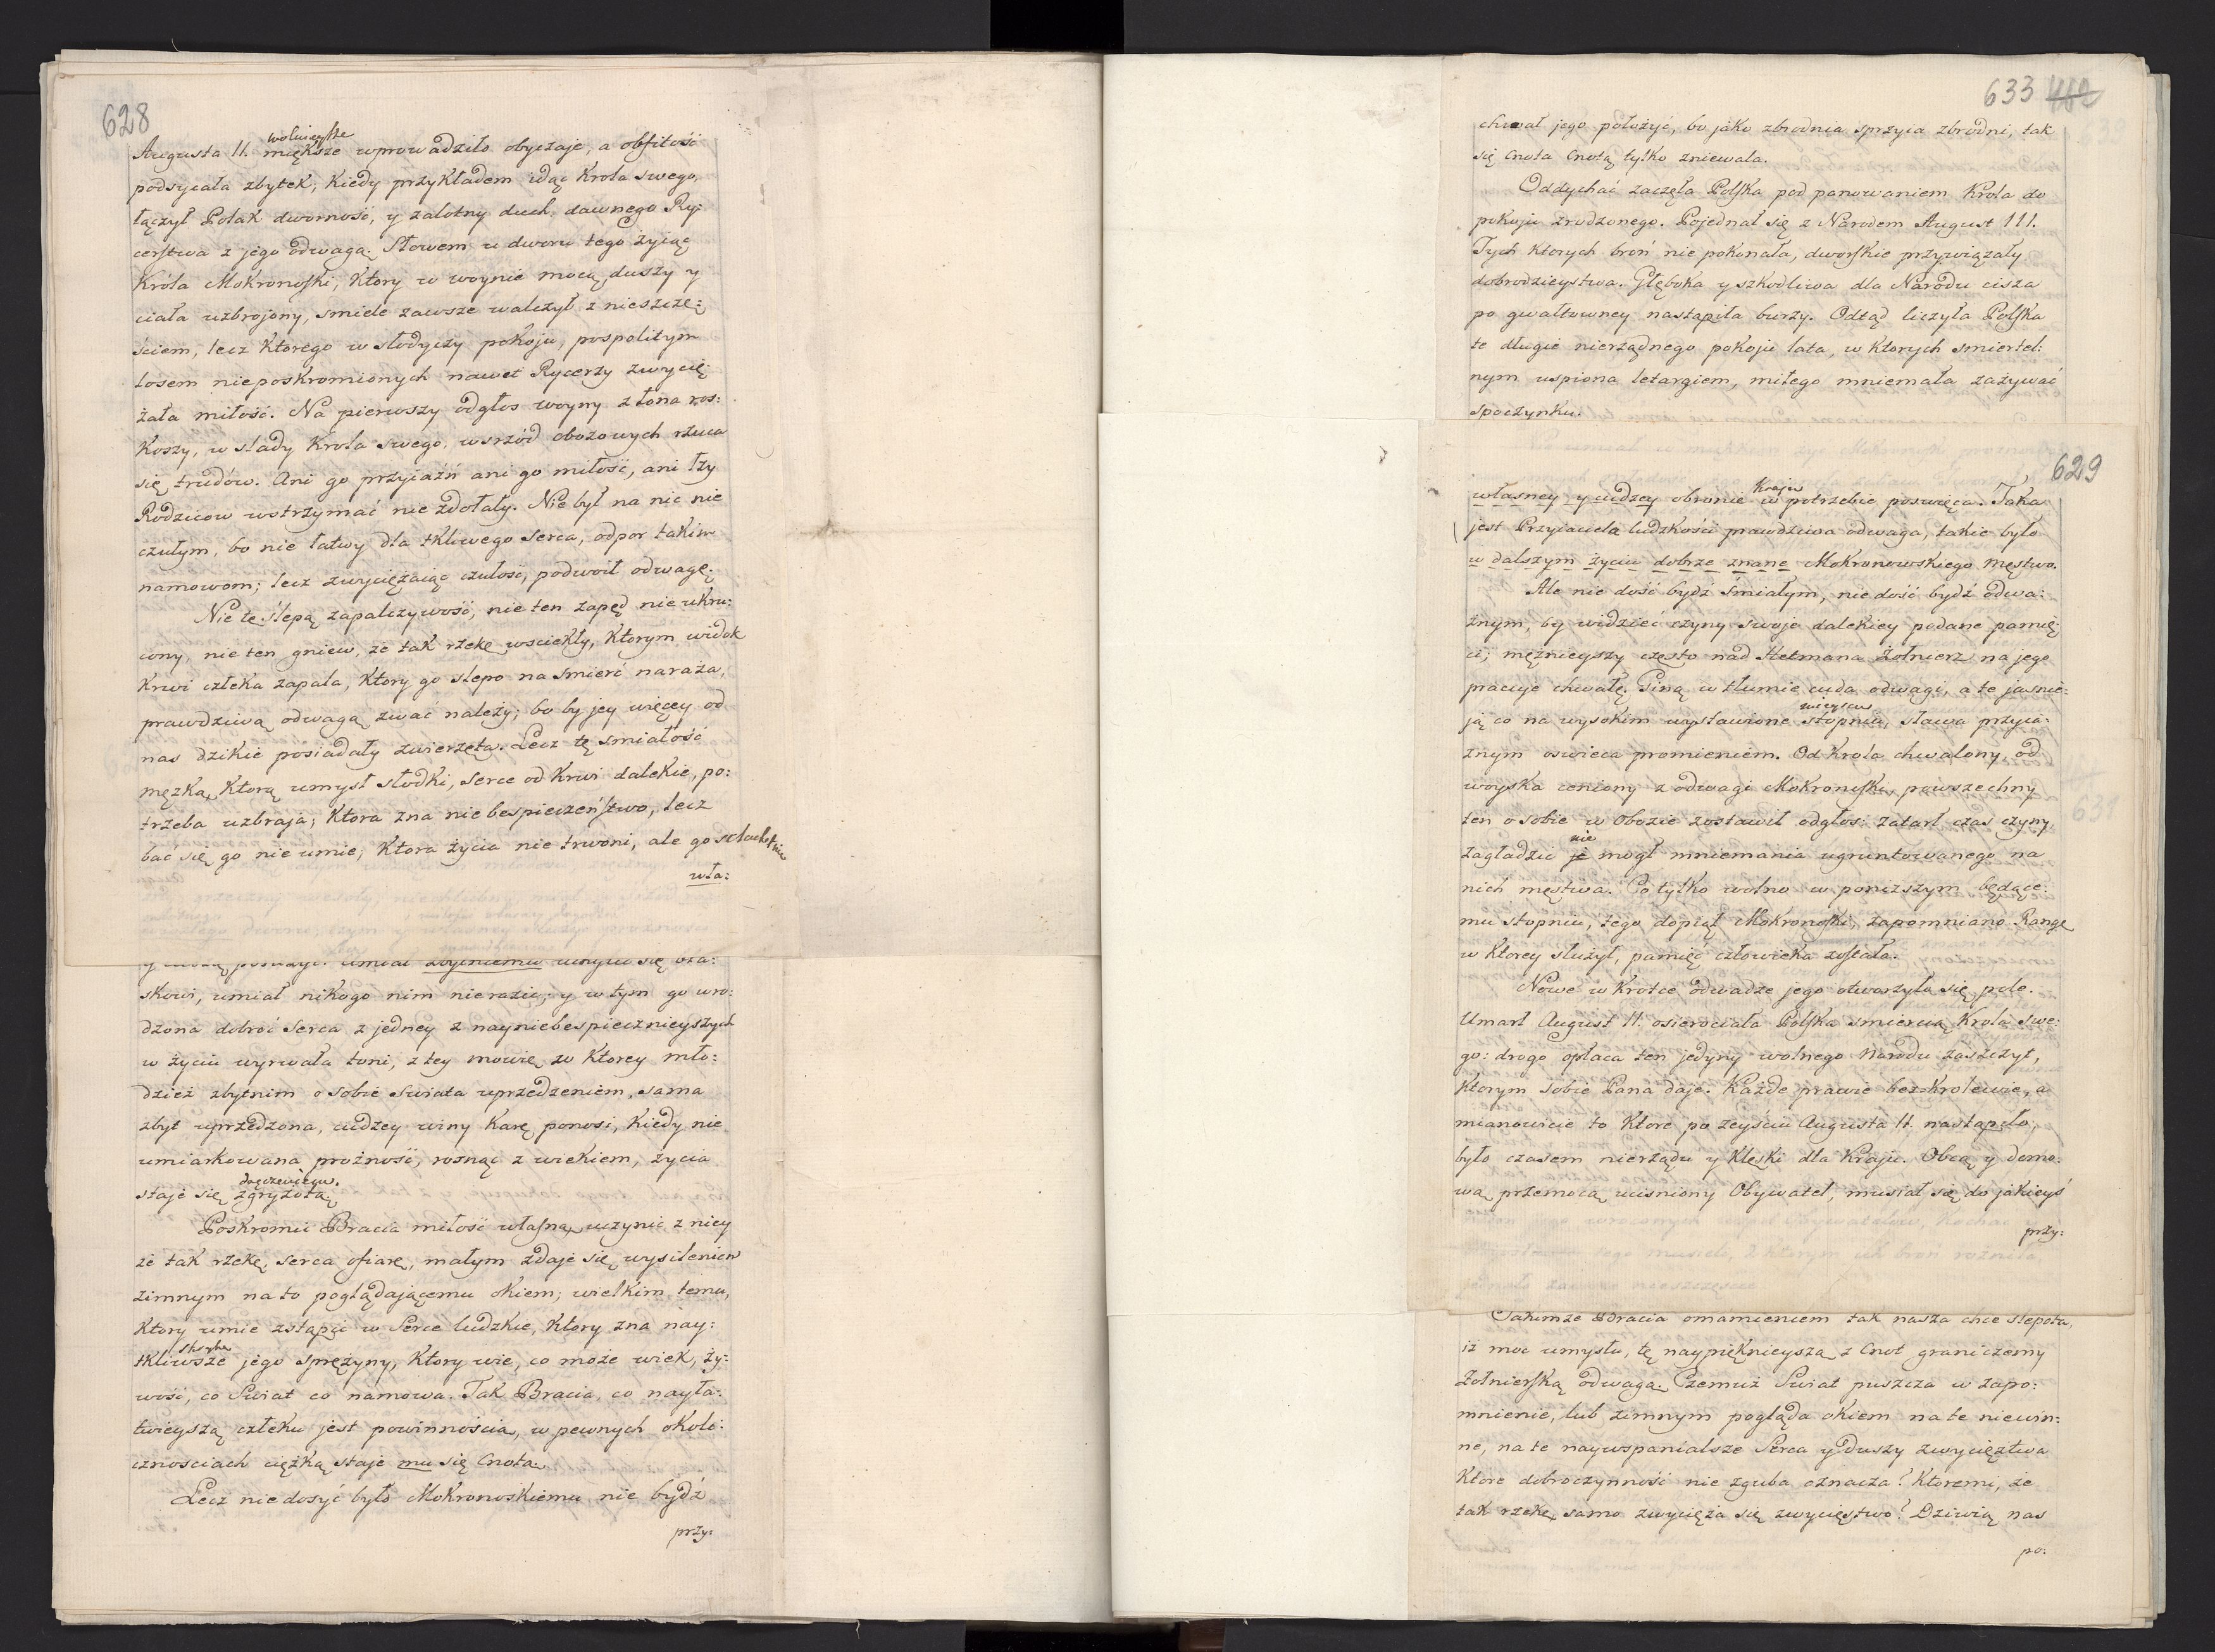 628
wolnieysze
Augusta II. miększe wprowadziło obyczaje, a obfitość
podsycała zbytek, kiedy przykładem idąc Krola swego,
łączył Polak dworność, y zalotny duch dawnego Ry:
cerstwa z jego odwagą. Słowem u dworu tego żyiąc
Króla Mokronoski, Ktory w woynie mocą duszy y
ciała uzbrojony, smiele zawsze walczył z nieszczę:
ściem, lecz Ktorego w słodyczy pokoju, pospolitym
losem nieposkromionych nawet Rycerzy zwycię:
żała miłość. Na pierwszy odgłos woyny z łona ros:
koszy, w slady Krola swego, wsrzód obozowych rzuca
się trudów. Ani go przyiaźń ani go miłość, ani łzy
Rodzicow wstrzymać nie zdołały. Nie był na nie nie
czułym, bo nie łatwy dla tkliwego Serca, odpor takim
namowom; lecz zwyciężaiąc czułość, podwoił odwagę.
Nie tę ślepą zapalczywość, nie ten zapęd nie ukru:
cony, nie ten gniew, że tak rzekę wsciekły, Ktorym widok
Krwi człeka zapala, Ktory go slepo na smierć naraża,
prawdziwą odwagą zwać należy; bo by jey więcey od
nas dzikie posiadały zwierzęta. Lecz tę smiałość
męzką, Ktorą umysł słodki, serce od Krwi dalekie, po:
trzeba uzbraja; Ktora zna niebespieczeństwo, lecz
bać się go nie umie, Ktora życia nie trwoni, ale go szlachetnie
wła:
umiał zbytniemu umknąć się bla:
skowi, umiał nikogo nim nierazić; y w tym go wro:
dzona dobroć Serca z jedney z nayniebespiecznieyszych
w życiu wyrwała toni, z tey mowię w Ktorey mło:
dzież zbytnim o sobie Swiata uprzedzeniem, sama
zbyt uprzedzona, cudzey winy Karę ponosi, Kiedy nie
umiarkowana prożność, rosnąc z wiekiem, życia
dręczeniem.
staje się zgryzotą
Poskromić Bracia miłość własną, uczynić z niey
że tak rzekę, Serca ofiarę, małym zdaje się wysileniem
zimnym na to poglądającemu okiem; wielkim temu,
Ktory umie zstąpić w Serce ludzkie, Ktory zna nay:
skryte
tkliwsze jego sprężyny, Ktory wie, co może wiek, ży:
wość, co Swiat co namowa. Tak Bracia, co nayła:
twieyszą człeku jest powinnością, w pewnych okoli:
cznosciach ciężką staje mu się Cnotą.
Lecz nie dosyć było Mokronoskiemu nie bydź
przy:
633 462
chwał jego położyć, bo jako zbrodnia sprzyia zbrodni, tak
się Cnota Cnotą tylko zniewala.
Oddychać zaczęła Polska pod panowaniem Krola do
pokoju zrodzonego. Pojednał się z Narodem August III.
Tych Ktorych broń nie pokonała, dworskie przywiązały
dobrodzieystwa. Głęboka y szkodliwa dla Narodu cisza
po gwałtowney nastąpiła burzy. Odtąd liczyła Polska
te długie nierządnego pokoju lata, w Ktorych smiertel:
nym uspiona letargiem, miłego mniemała zażywać
spoczynku.
629
Kraju
własney y cudzey obronie w potrzebie poswięca. Taka
jest Przyiaciela ludzkości prawdziwa odwaga, takie było
w dalszym życiu dobrze znane Mokronowskiego męstwo.
Ale nie dość bydź śmiałym, nie dość bydź odwa:
żnym, by widzieć czyny swoje dalekiey podane pamię:
ci; mężnieyszy często nad Hetmana Żołnierz na jego
pracuje chwałę. Giną w tłumie cuda odwagi, a te jasnie:
mieyscu
ją co na wysokim wystawione stopniu, sława przyia:
znym oswieca promieniem. Od Krola chwalony, od
woyska ceniony z odwagi Mokronoski, powszechny
ten o sobie w Obozie zostawił odgłos: zatarł czas czyny
nie
zagładzić je mogł mniemania ugruntowanego na
nich męstwa. Co tylko wolno w poniższym będące:
mu stopniu, tego dopiął Mokronoski; zapomniano Rangę
w Ktorey służył, pamięć człowieka została.
Nowe w krotce odwadze jego otworzyło się pole.
Umarł August II. osierociała Polska smiercią Krola swe:
go: drogo opłaca ten jedyny wolnego Narodu zaszczyt,
Ktorym sobie Pana daje. Każde prawie bezkrolewie, a
mianowicie to Ktore po zeyściu Augusta II. nastąpiło,
było czasem nierządu y klęski dla Kraju. Obcą y domo:
wą przemocą ucisniony Obywatel, musiał się do jakieyś
przy:
631
Takimże Bracia omamieniem tak nasza chce slepota,
iż moc umysłu, tę naypięknieyszą z Cnot graniczemy
Żołnierską odwagą. Czemuż Swiat puszcza w zapo:
mnienie, lub zimnym pogląda okiem na te niewin:
ne, na te naywspanialsze Serca y Duszy zwycięztwa
Ktore dobroczynność nie zguba oznacza? Ktoremi, że
tak rzekę, samo zwycięża się zwycięstwo? Dziwią nas
po: